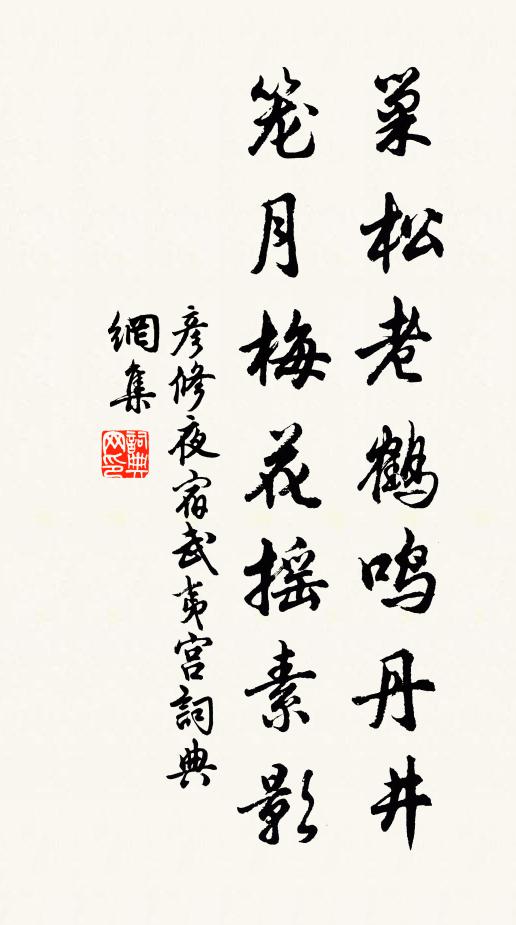 巢松老鶴鳴丹井
笼月梅花摇素影
彦修夜宿武夷宫詞典
網集
詞典网印